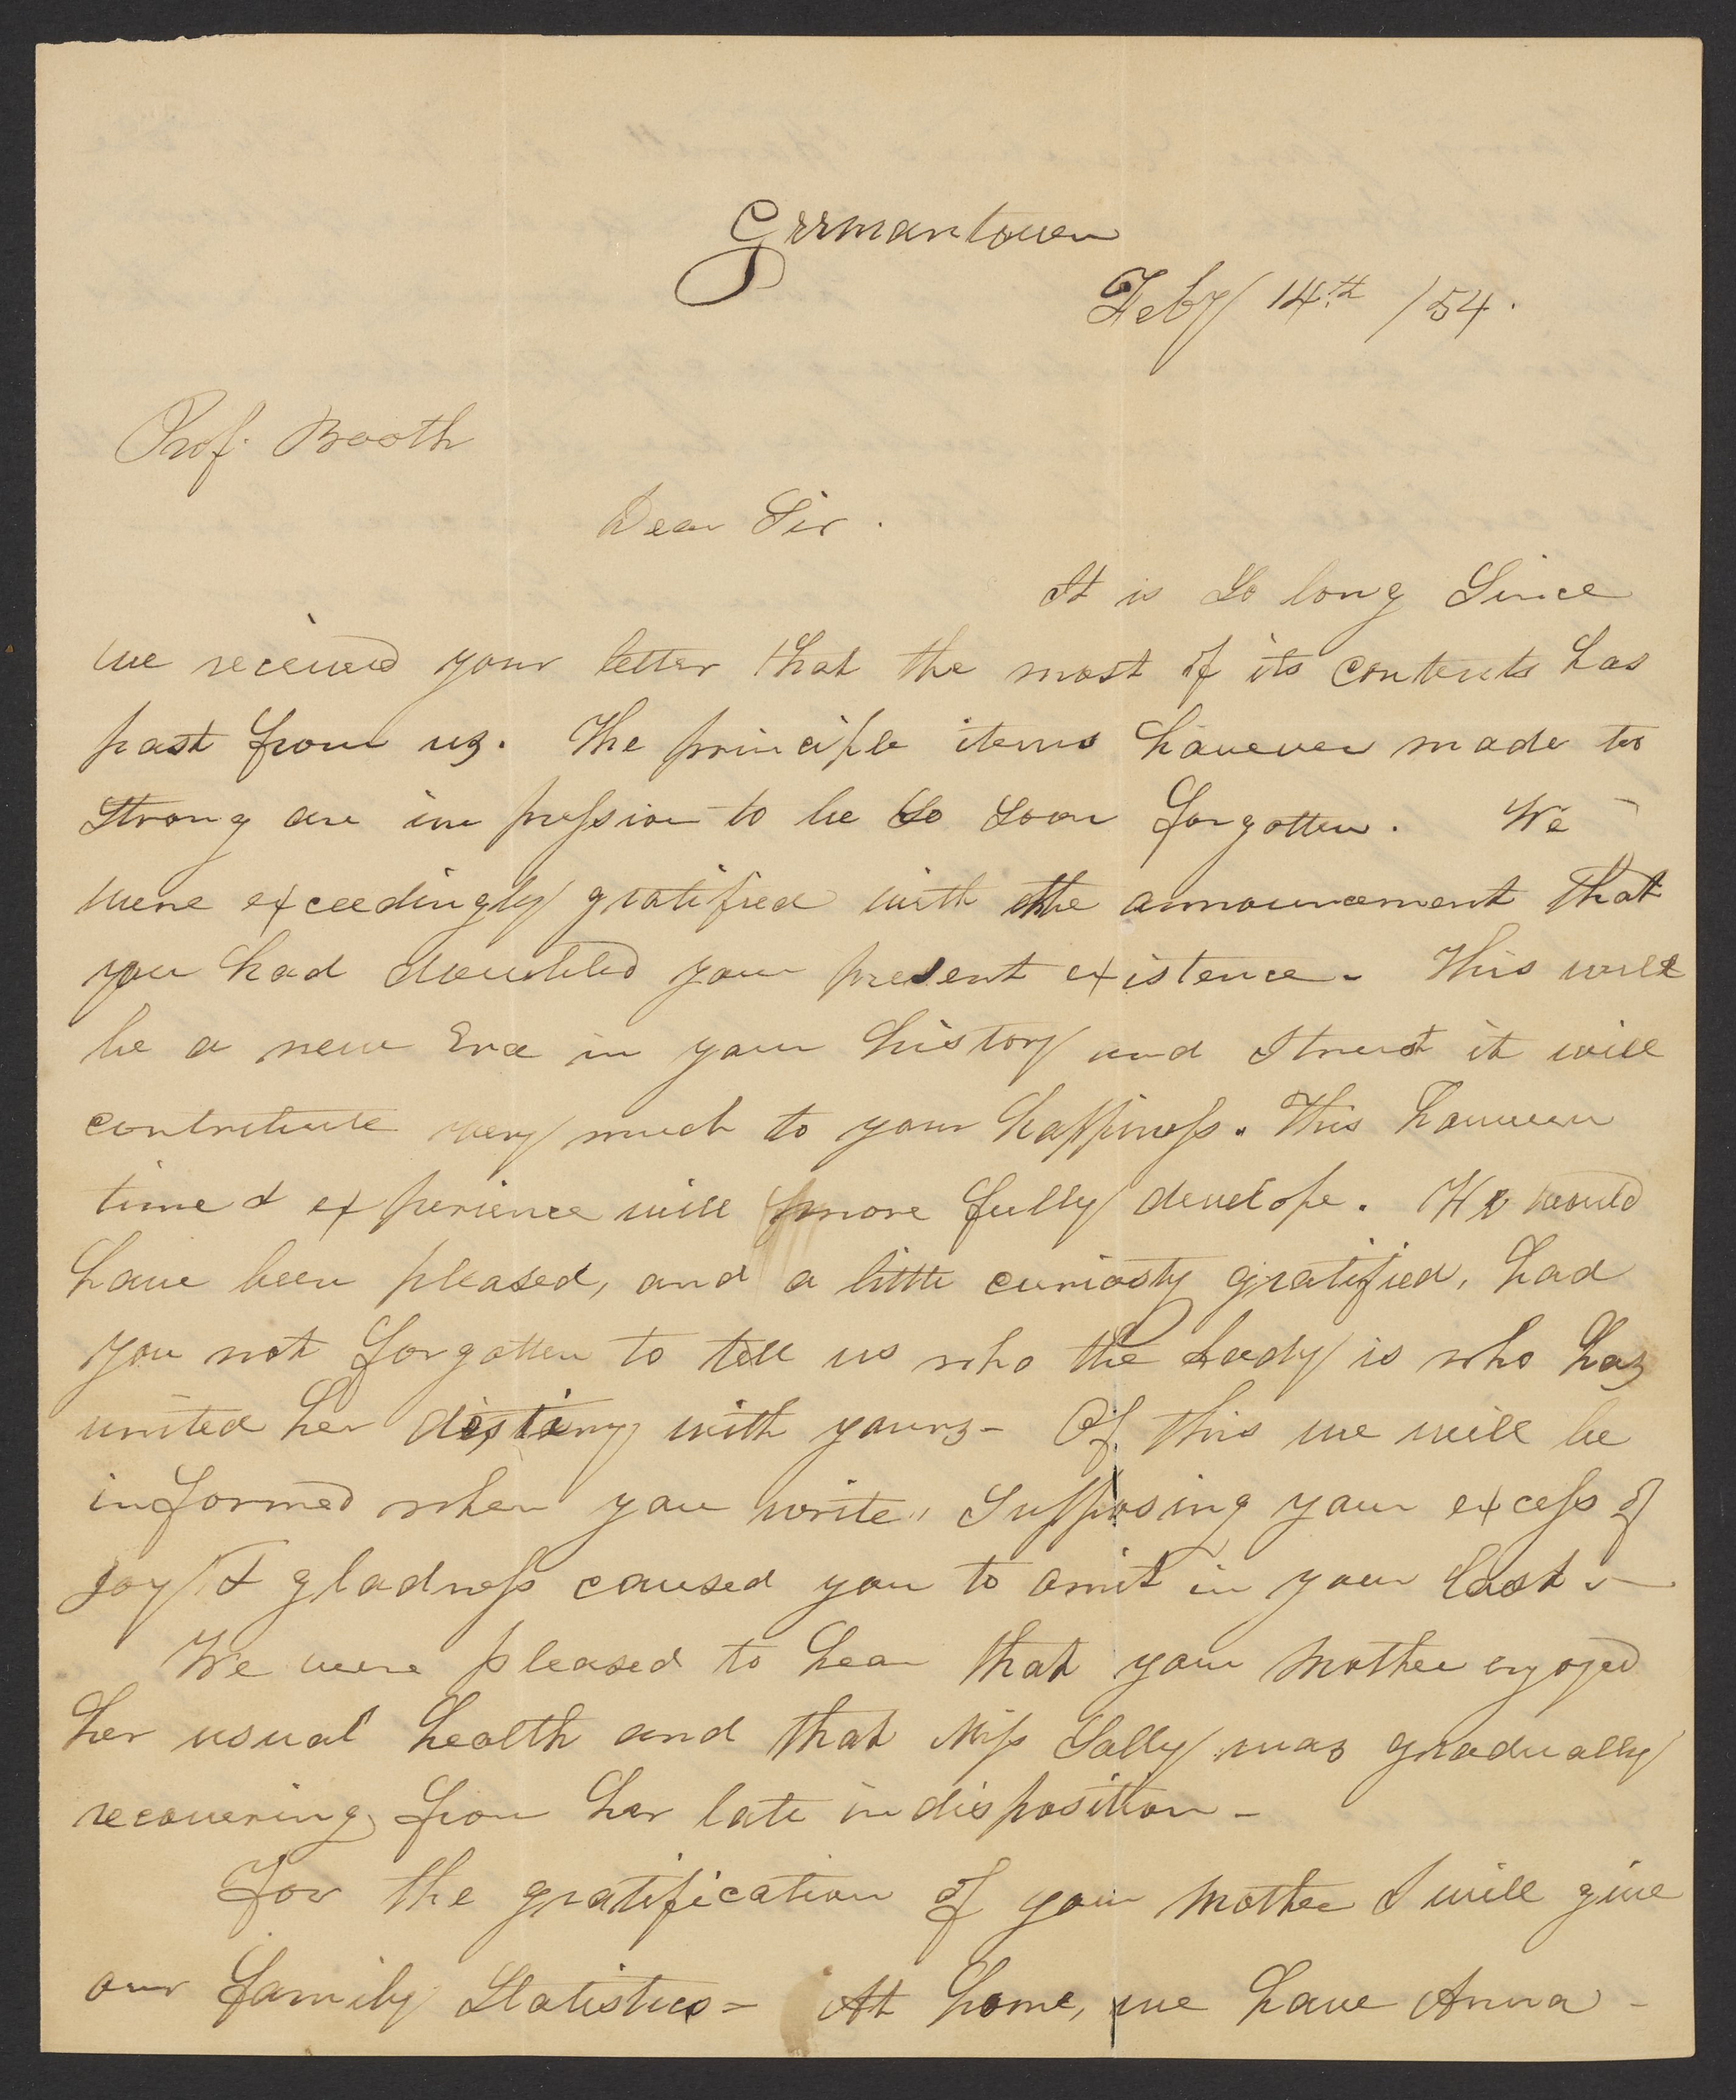 Germantown
Feby 14th /54.
Prof. Booth
Dear Sir.
It is so long Since
we received your letter that the most of its contents has
past from us. The principle items however made to
strong an impression to be so soon forgotten. We
were exceedingly gratified with the announcement that
you had doubled your present existence - This will
be a new Era in your history and I trust it will
contribute very much to your happiness. This however
time & experience will more fully develope. We would
have been pleased, and a little curiosty gratified, had
you not forgotten to tell us who the Lady is who has
united her destiny with yours - Of this we will be
informed when you write, Supposing your excess of
joy & gladness caused you to omit in your last. -
We were pleased to hear that your Mother enjoyed
her usual health and that Miss Sally was gradually
recovering from her late indisposition -
For the gratification of your Mother I will give
our family Statistics = At home, we have Anna -